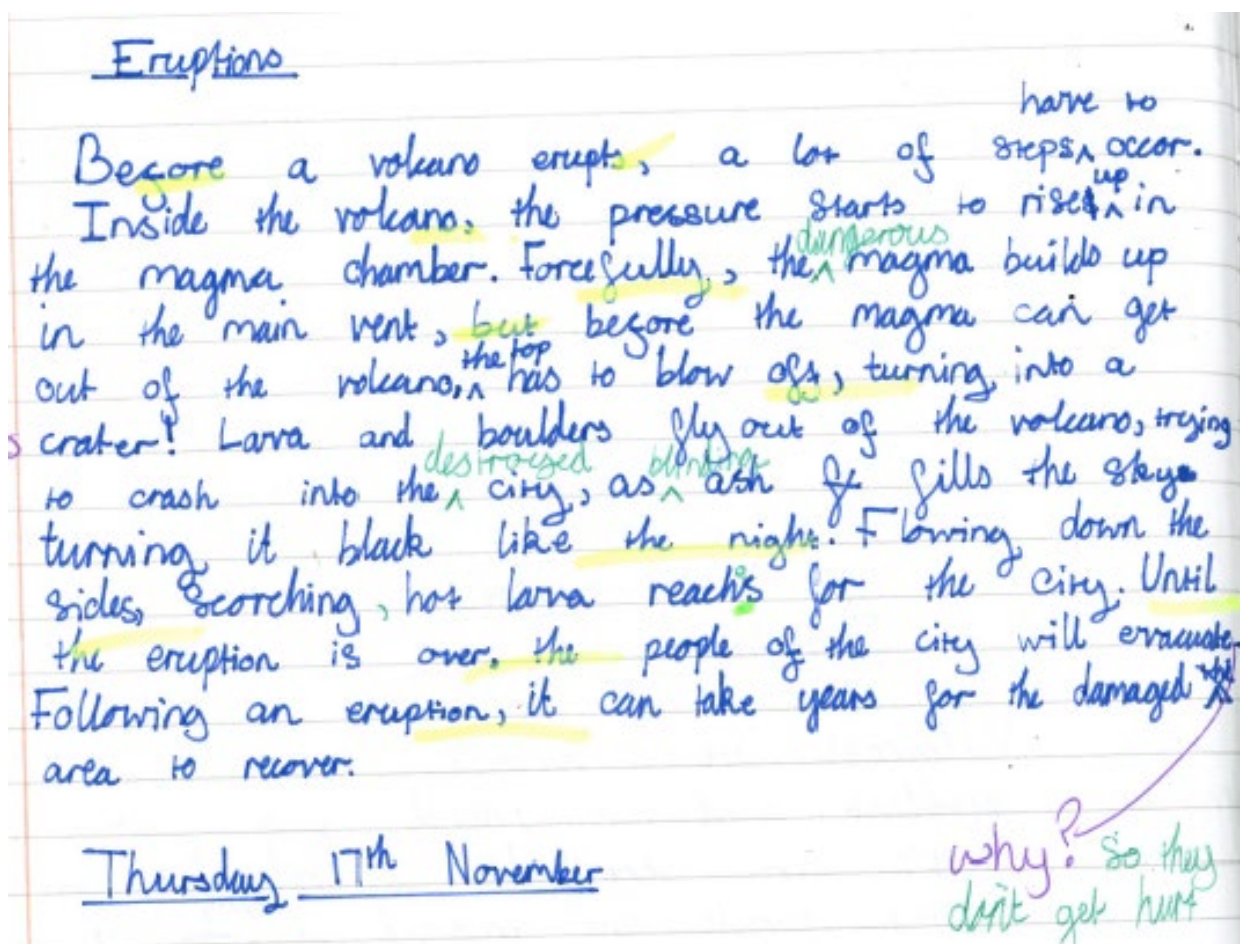 Eruptions
have to
Before a volcano erupts, a lot of steps ^ occor.
Inside the volcano, the pressure starts to rise ^ up in
dangerous
the magma chamber. Forcefully, the ^ magma builds up
in the main vent, but before the magma can get
the top
out of the volcano, ^ has to blow off, turning into a
crater! Larva and boulders fly out of the volcano, trying
destroyed blinding
to crash into the ^ city, as ^ ash fills the sky
turning it black like the night. Flowing down the
sides, scorching, hot larva reachs for the city. Until
the eruption is over, the people of the city will evacuate.
Following an eruption, it can take years for the damaged
area to recover.
Thursday 17th November
why? So they
don't get hurt